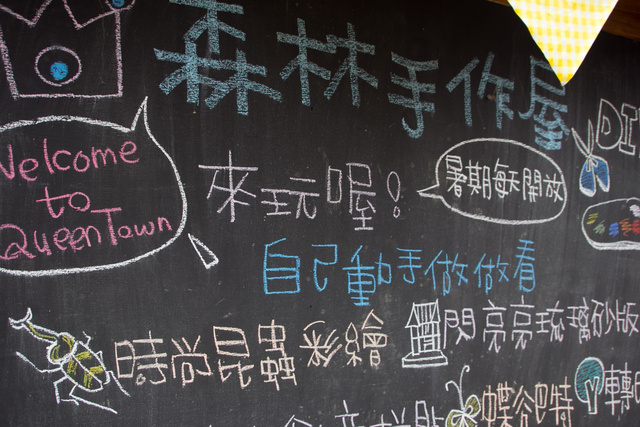 森林手作屋
DIY
Welcome
to
QueenTown
來玩喔!
暑期每天開放
自己動手做做看
時尚昆蟲彩繪
閃亮亮琉璃砂版
拼貼
蝶谷巴特
轉